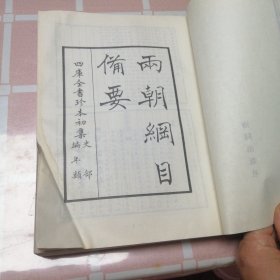 兩朝綱目
備要
四庫全書珍本初集
史部
編年類